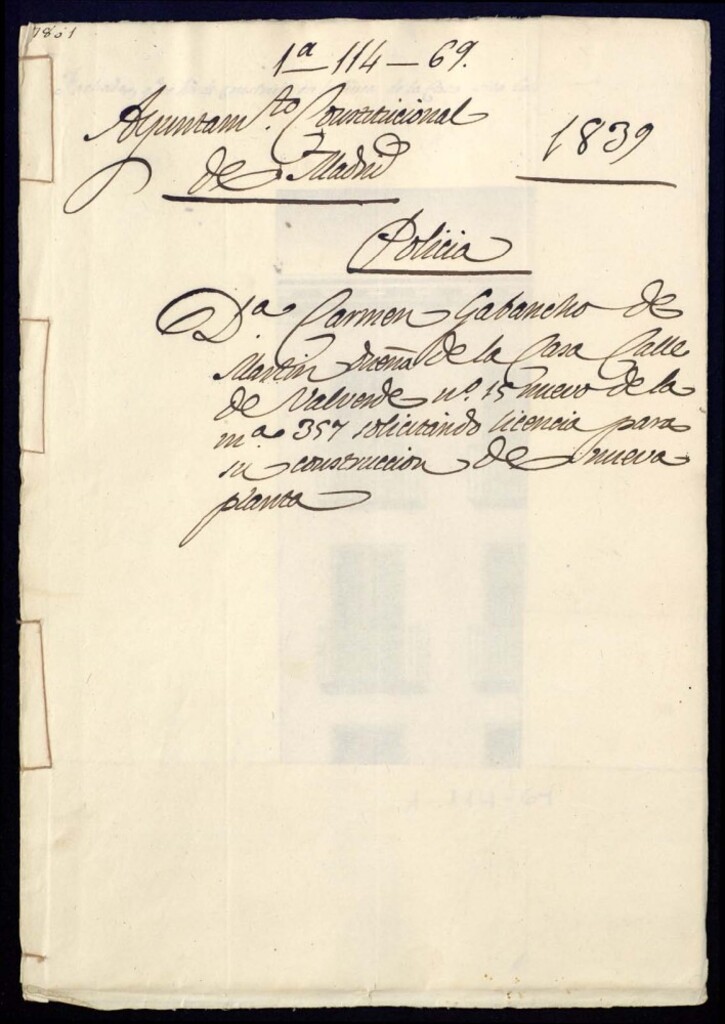 1ª-114-69.
Ayuntam.to Constitucional
de Madrid
1839
Policia
D.a Carmen Gabancho de
Martin dueña de la Casa Calle
de Valverde nº. 15 nuevo de la
m.a 357 solicitando licencia para
su construccion de nueva
planta